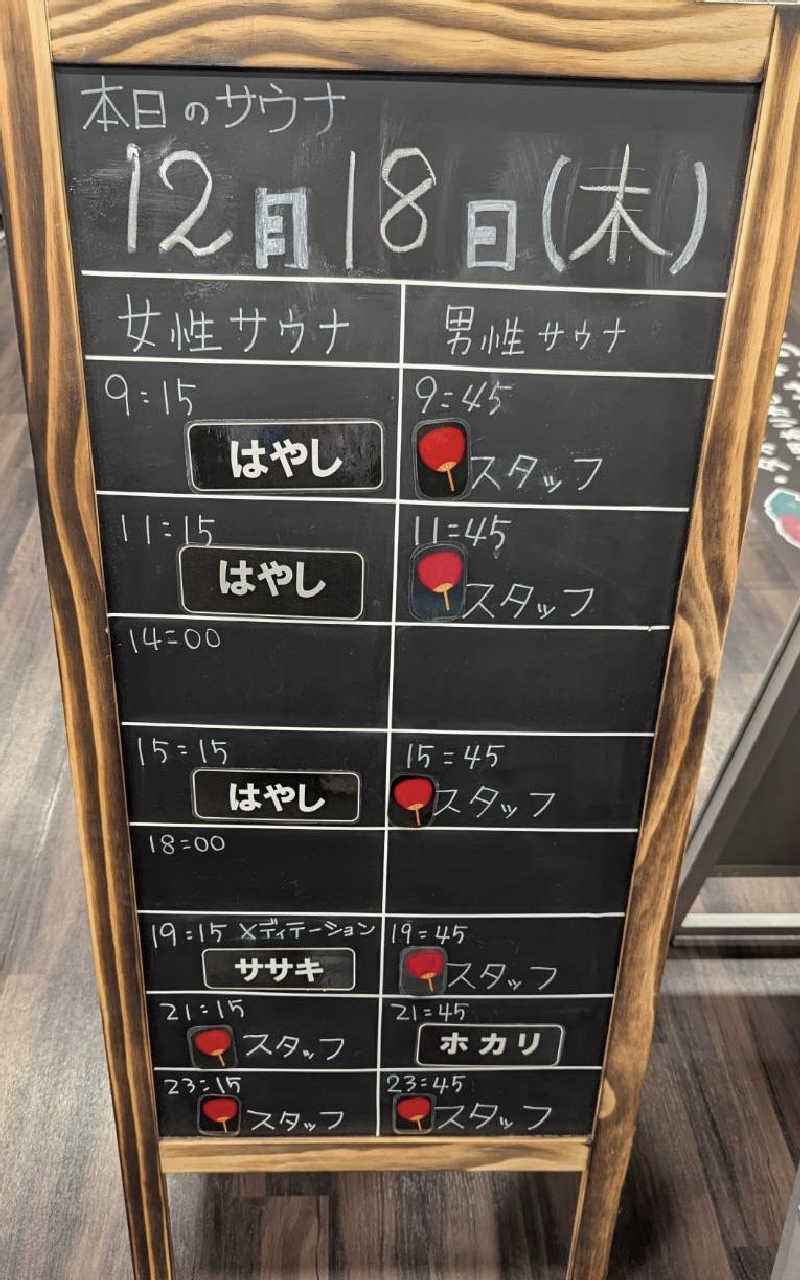 本日のサウナ
12月18日(木)
女性サウナ 男性サウナ
9:15 9:45
はやし スタッフ
11:15 11:45
はやし スタッフ
14:00
15:15 15:45
はやし スタッフ
18:00
19:15 メディテーション 19:45
ササキ スタッフ
21:15 21:45
スタッフ ホカリ
23:15 23:45
スタッフ スタッフ